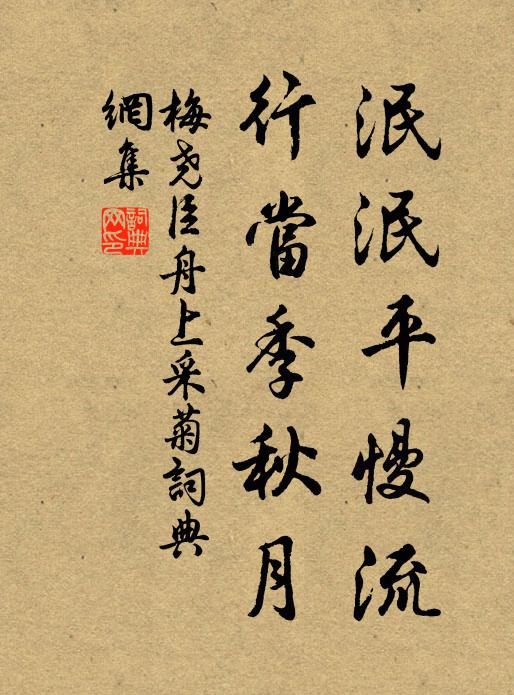 泯泯平慢流
行當季秋月
梅尧臣舟上采菊詞典
網集
詞典
网印